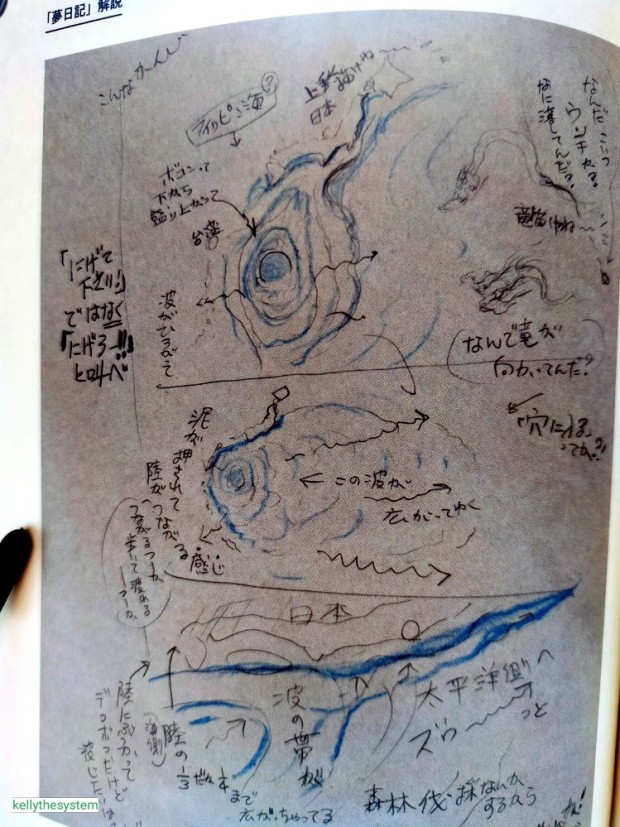 「夢日記」解説
こんなかーんじ
フィリピン海?
上手く描けね
日本
ボコンって
下から
盛り上がって
台湾
波がひろがって
なんだ こいつ
ウンチか?
なに落してんだ?
竜描けね
なんで竜が
向かってんだ?
「にげて
下さい」
ではなく
「にげろー!!!」
と叫べ
泥が押されて
陸がつながる
感じ
つながるつーか、
歩いて渡れる
つーか、
この波が
広がってゆく
日本
太平洋側へ
ズウーーっと
波の帯が
陸にぶつかって
デコボコだけど
(海側)
陸の
1/3だね
まで
広がっちゃってる
森林伐採なんか
するから
kellythesystem